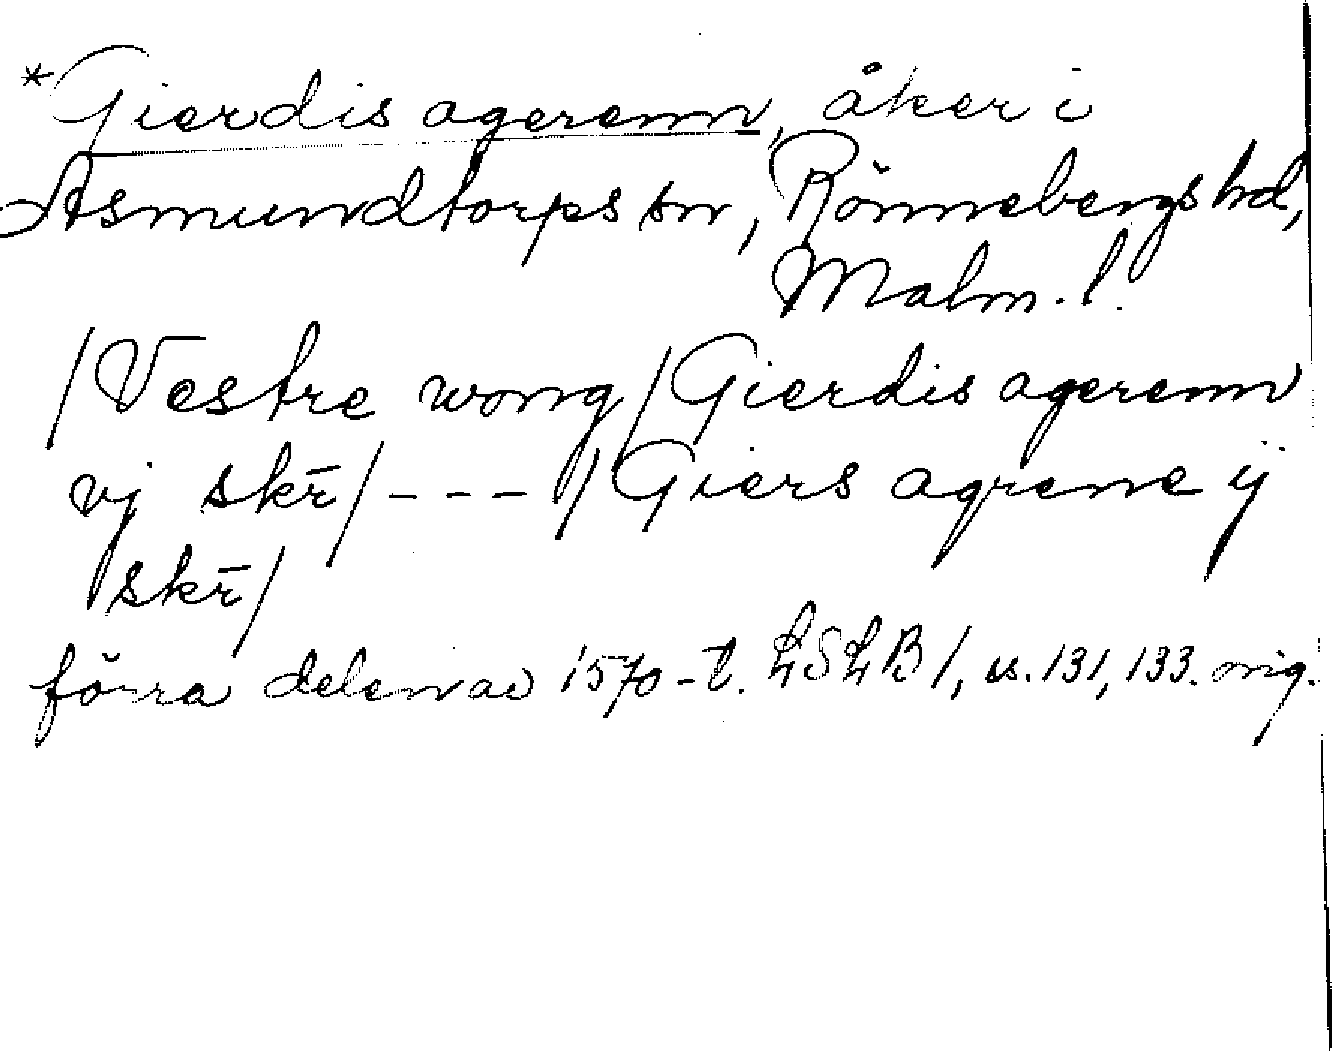 *Gierdis agerenn, åker i
Asmundtorps sn, Rönnebergs hd,
Malm. l.
/Vestre wong/Gierdis agerenn
vj skr̄/- - - /Giers agrene ij
skr̄/
förra delen av 1570-t. LSLB 1, s. 131, 133. orig.